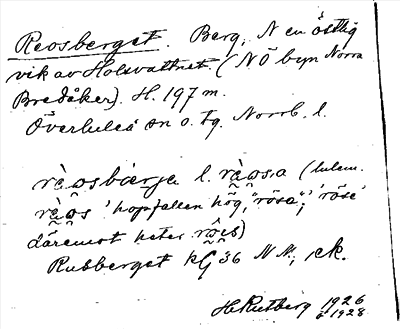 Reosberget. Berg, N en östlig
vik av Holsvattnet. (NÖ byn Norra
Bredåker). H. 197 m.
Överluleå sn o. tg. Norrb. l.
ràosbærje l. ràosa (lulem.
ràos 'hopfallen hög, "rösa"'; 'röse'
däremot heter rôis)
Rusberget kG 36 NN; ek.
H Rutberg 1926
o 1928